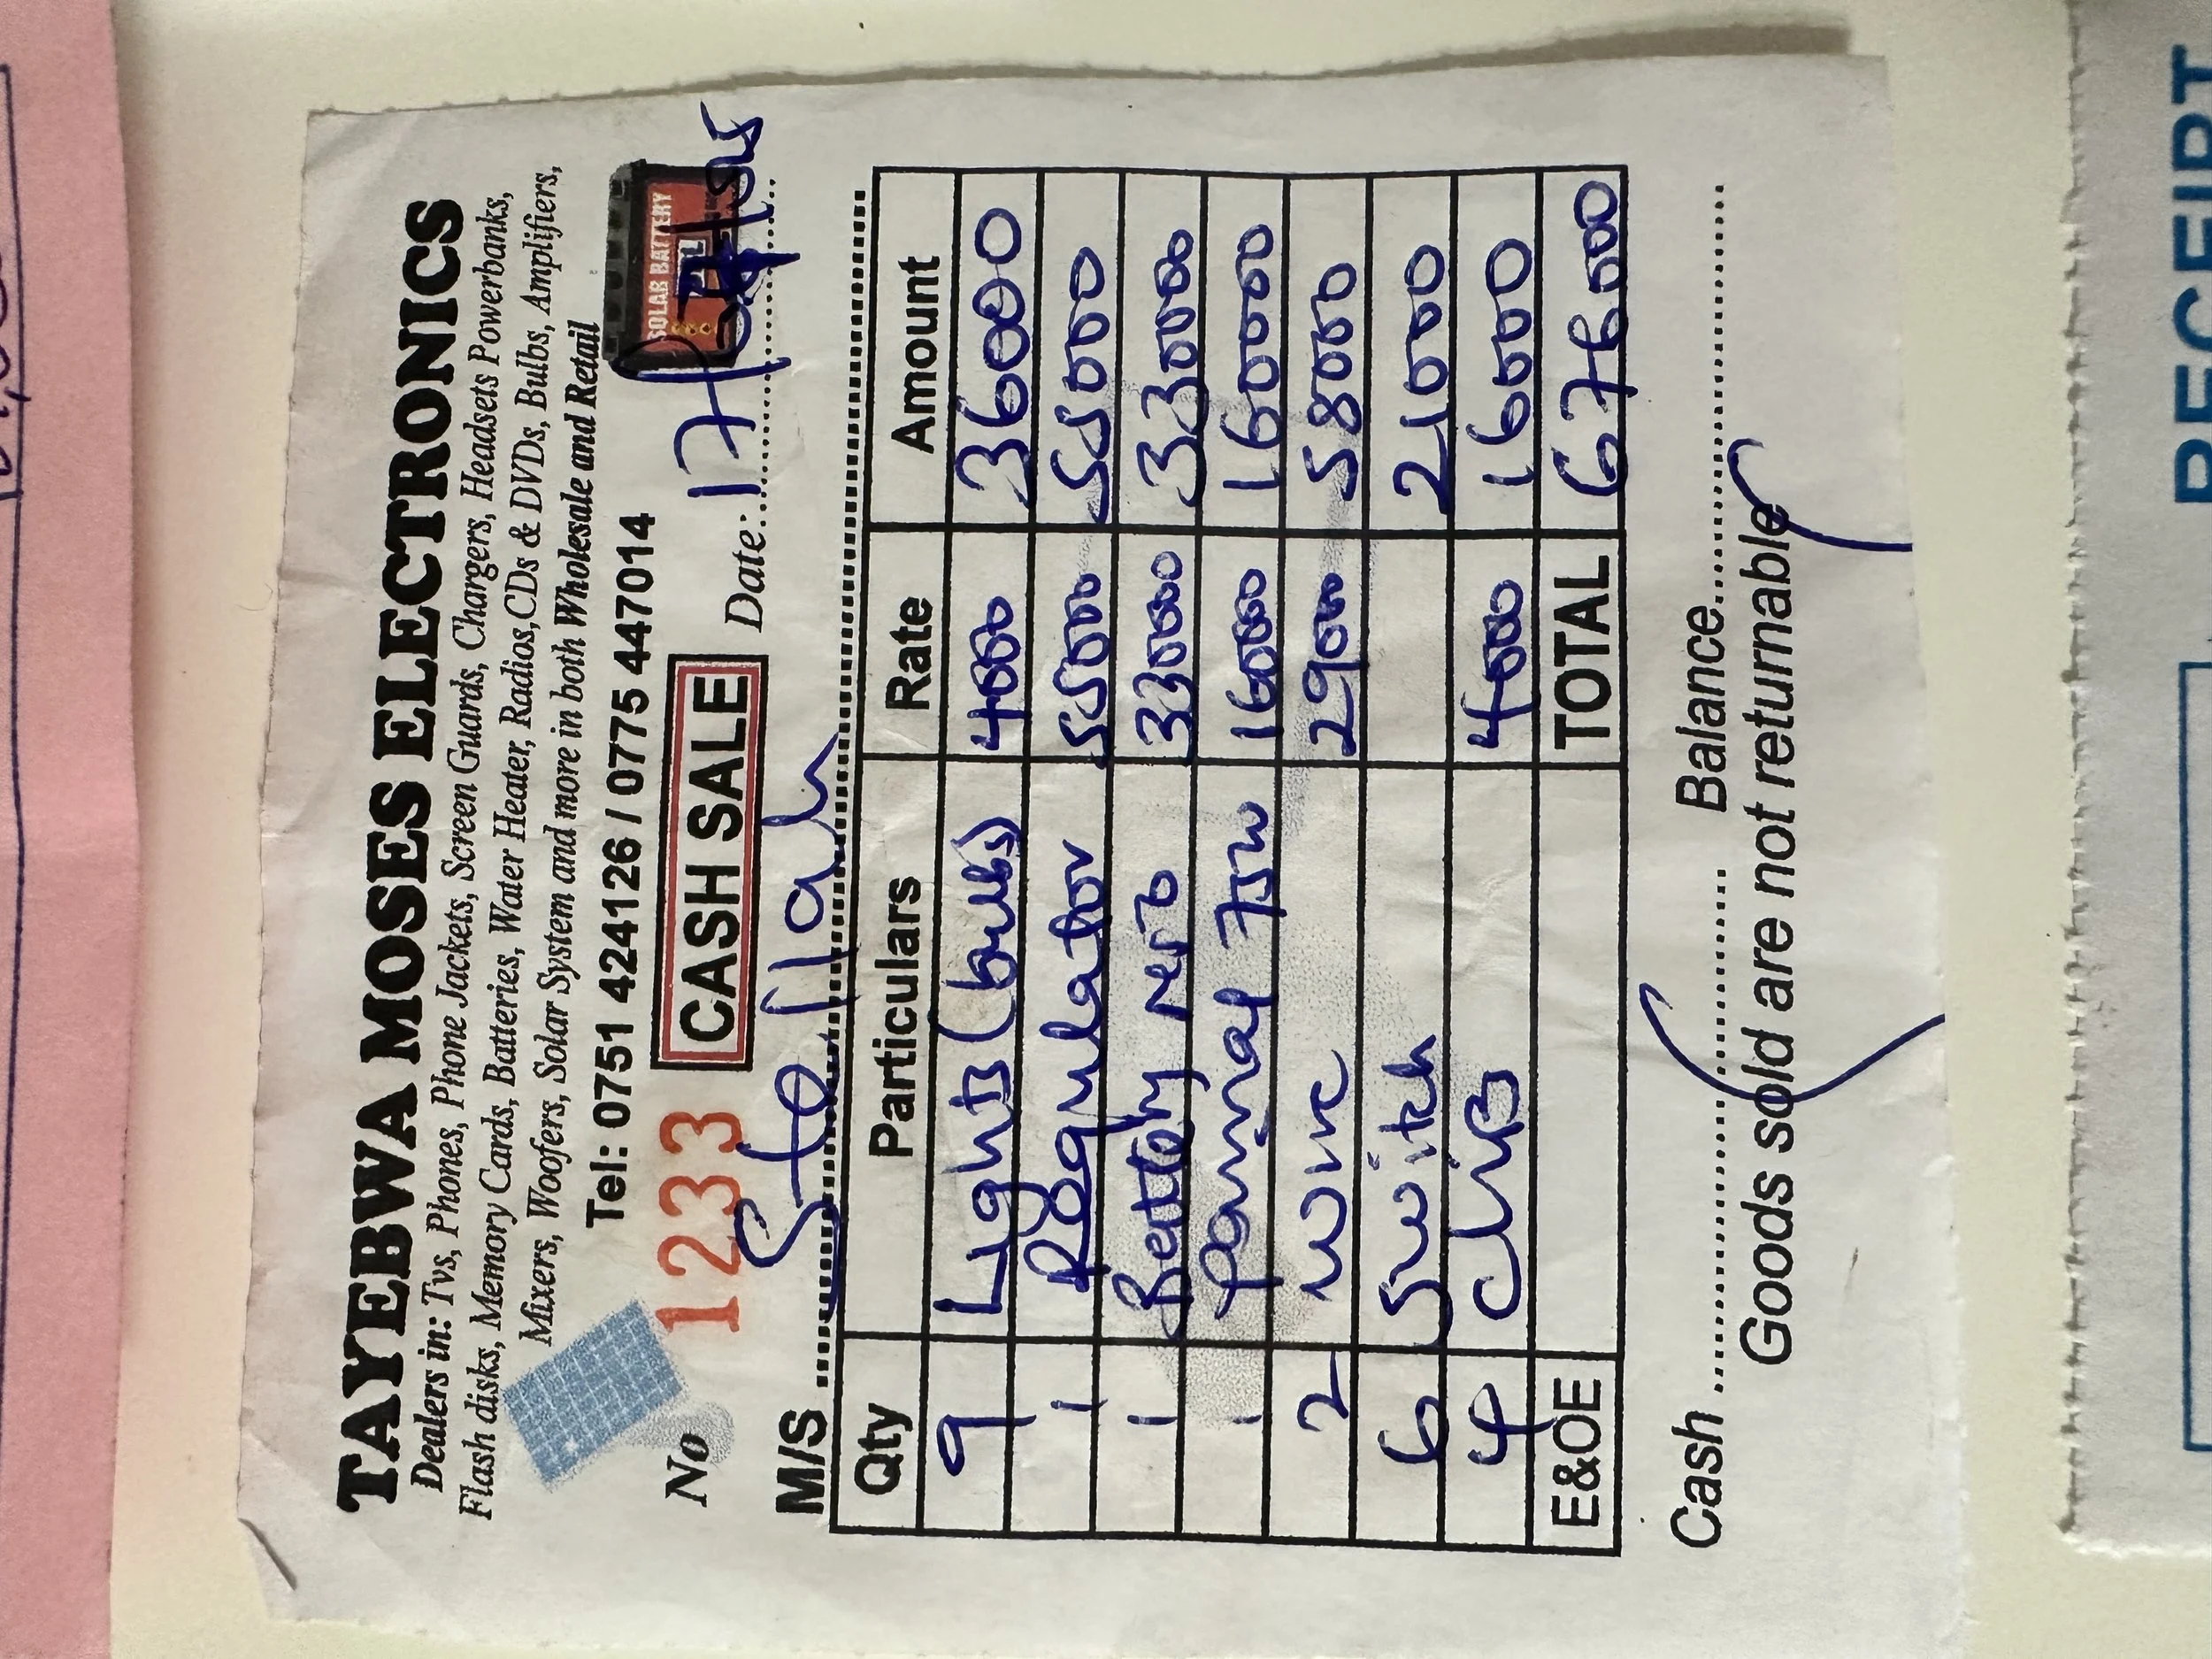 TAYEBWA MOSES ELECTRONICS
Dealers in: Tvs, Phones, Phone Jackets, Screen Guards, Chargers, Headsets Powerbanks,
Flash disks, Memory Cards, Batteries, Water Heater, Radios,CDs & DVDs, Bulbs, Amplifiers,
Mixers, Woofers, Solar System and more in both Wholesale and Retail
Tel: 0751 424126 / 0775 447014
SOLAR BATTERY
No 1233 CASH SALE Date: 17/
M/S Stellah
Qty Particulars Rate Amount
9 Lights (bulbs) 4000 36000
1 Regulator 55000 55000
1 Battery 33000 33000
1 pannal 75W 16000 160000
2 wire 29000 58000
6 Switch 21000
4 clips 4000 16000
E&OE TOTAL 676000
Cash Balance
Goods sold are not returnable
RECEIPT